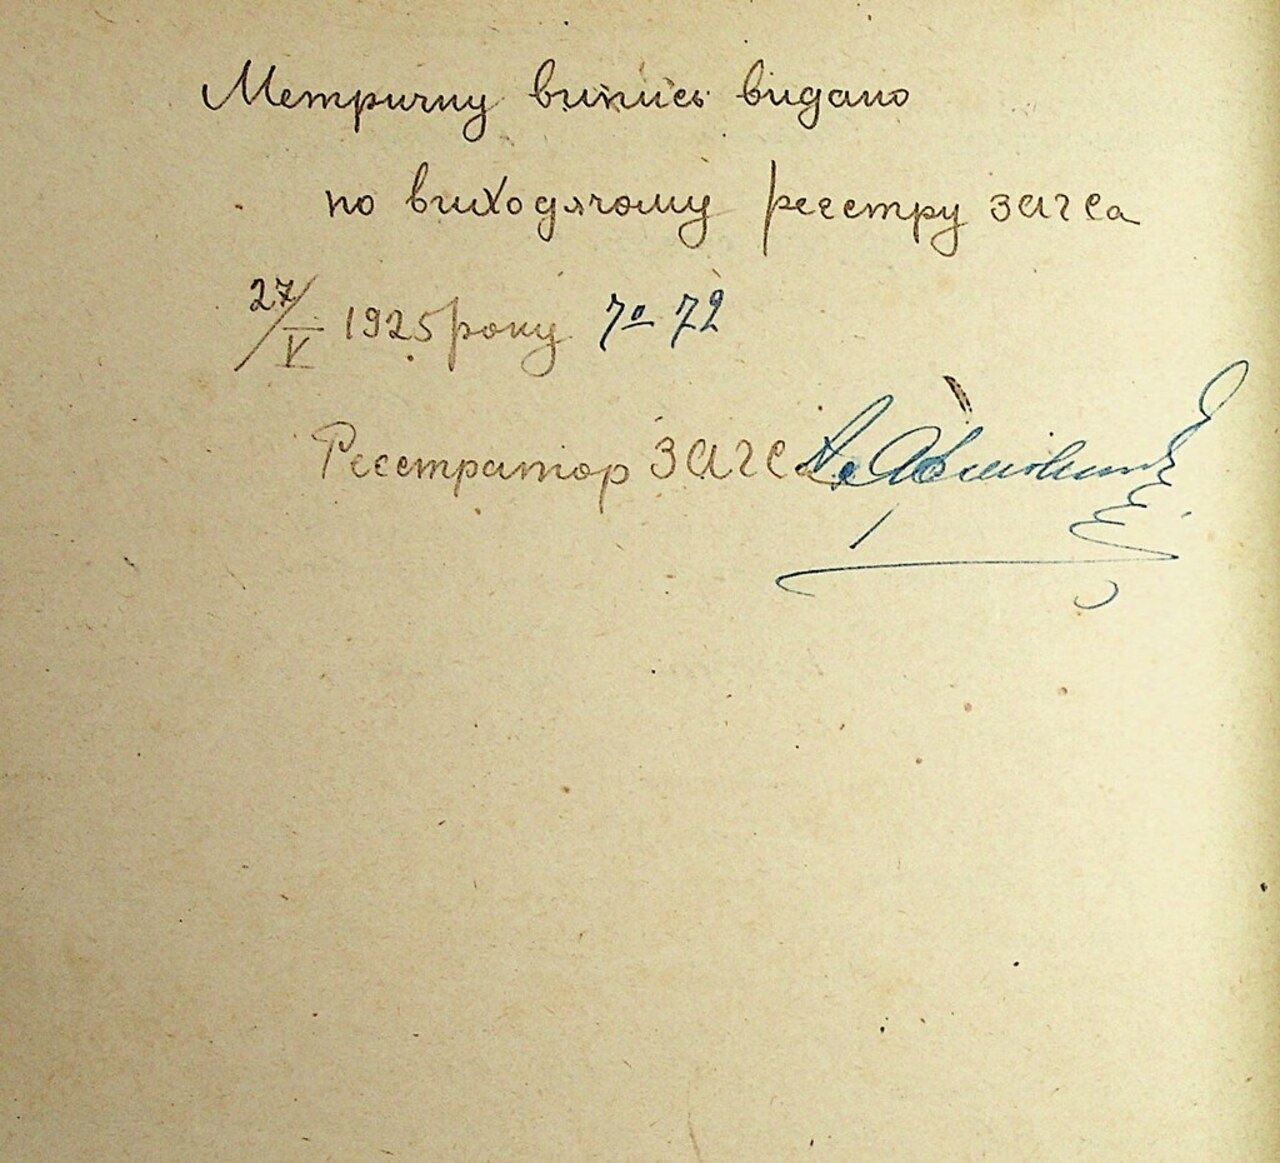 Метричну випись видано
по виходячому реєстру загса
27/V 1925 року № 72
Реєстратор загс